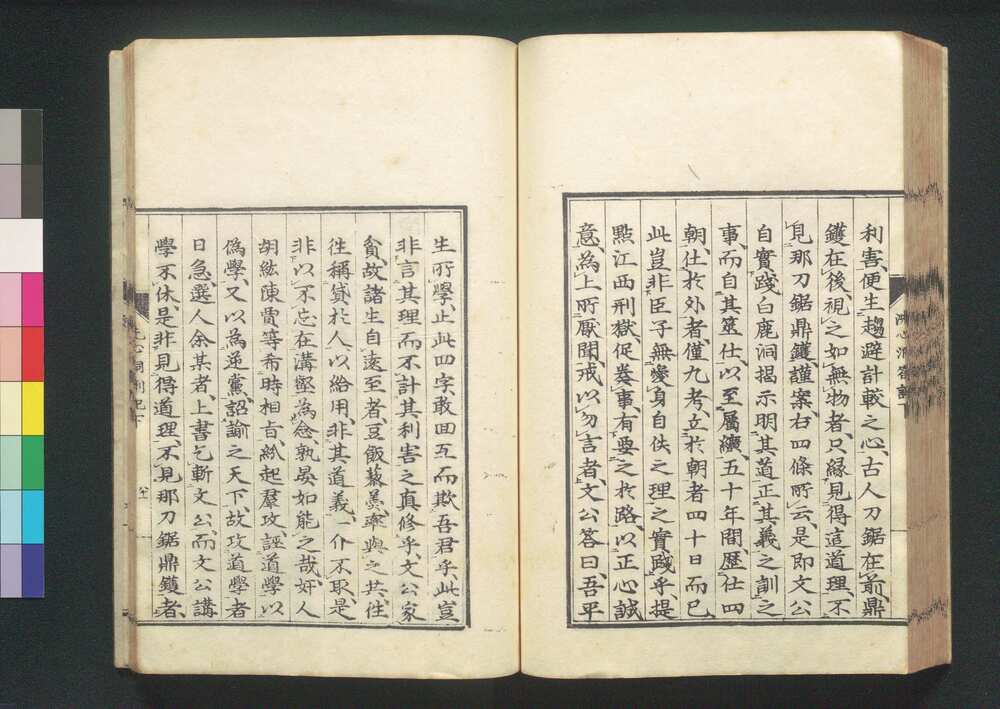 利害、便生趨避計較之心、古人刀鋸在前、鼎
鑊在後、視之如無物者、只緣見得這道理、不
見那刀鋸鼎鑊、謹案、右四條所云、是即文公
自實踐白鹿洞揭示明其道正其義之訓之
事、而自其筮仕、以至屬纊、五十年間、歷仕四
朝、仕於外者、僅九考、立於朝者四十日而已、
此豈非臣子無變身自佚之理之實踐乎、提
點江西刑獄、促奏事、有要之於路、以正心誠
意、為上所厭聞、戒以勿言者、文公答曰、吾平
生所學、止此四字、敢回互而欺吾君乎、此豈
非言其理而不計其利害之真修乎、文公家
貧、故諸生自遠至者、豆飯藜羹、率與之共、往
徃稱貸於人、以給用、非其道義、一介不取、是
非以不忘在溝壑為念、孰晏如能之哉、奸人
胡紘陳賈等希時相旨、紛起羣攻、誣道學以
偽學、又以為逆黨、詔諭之天下、故攻道學者
日急、選人余某者、上書乞斬文公、而文公講
學不休、是非見得道理、不見那刀鋸鼎鑊者、